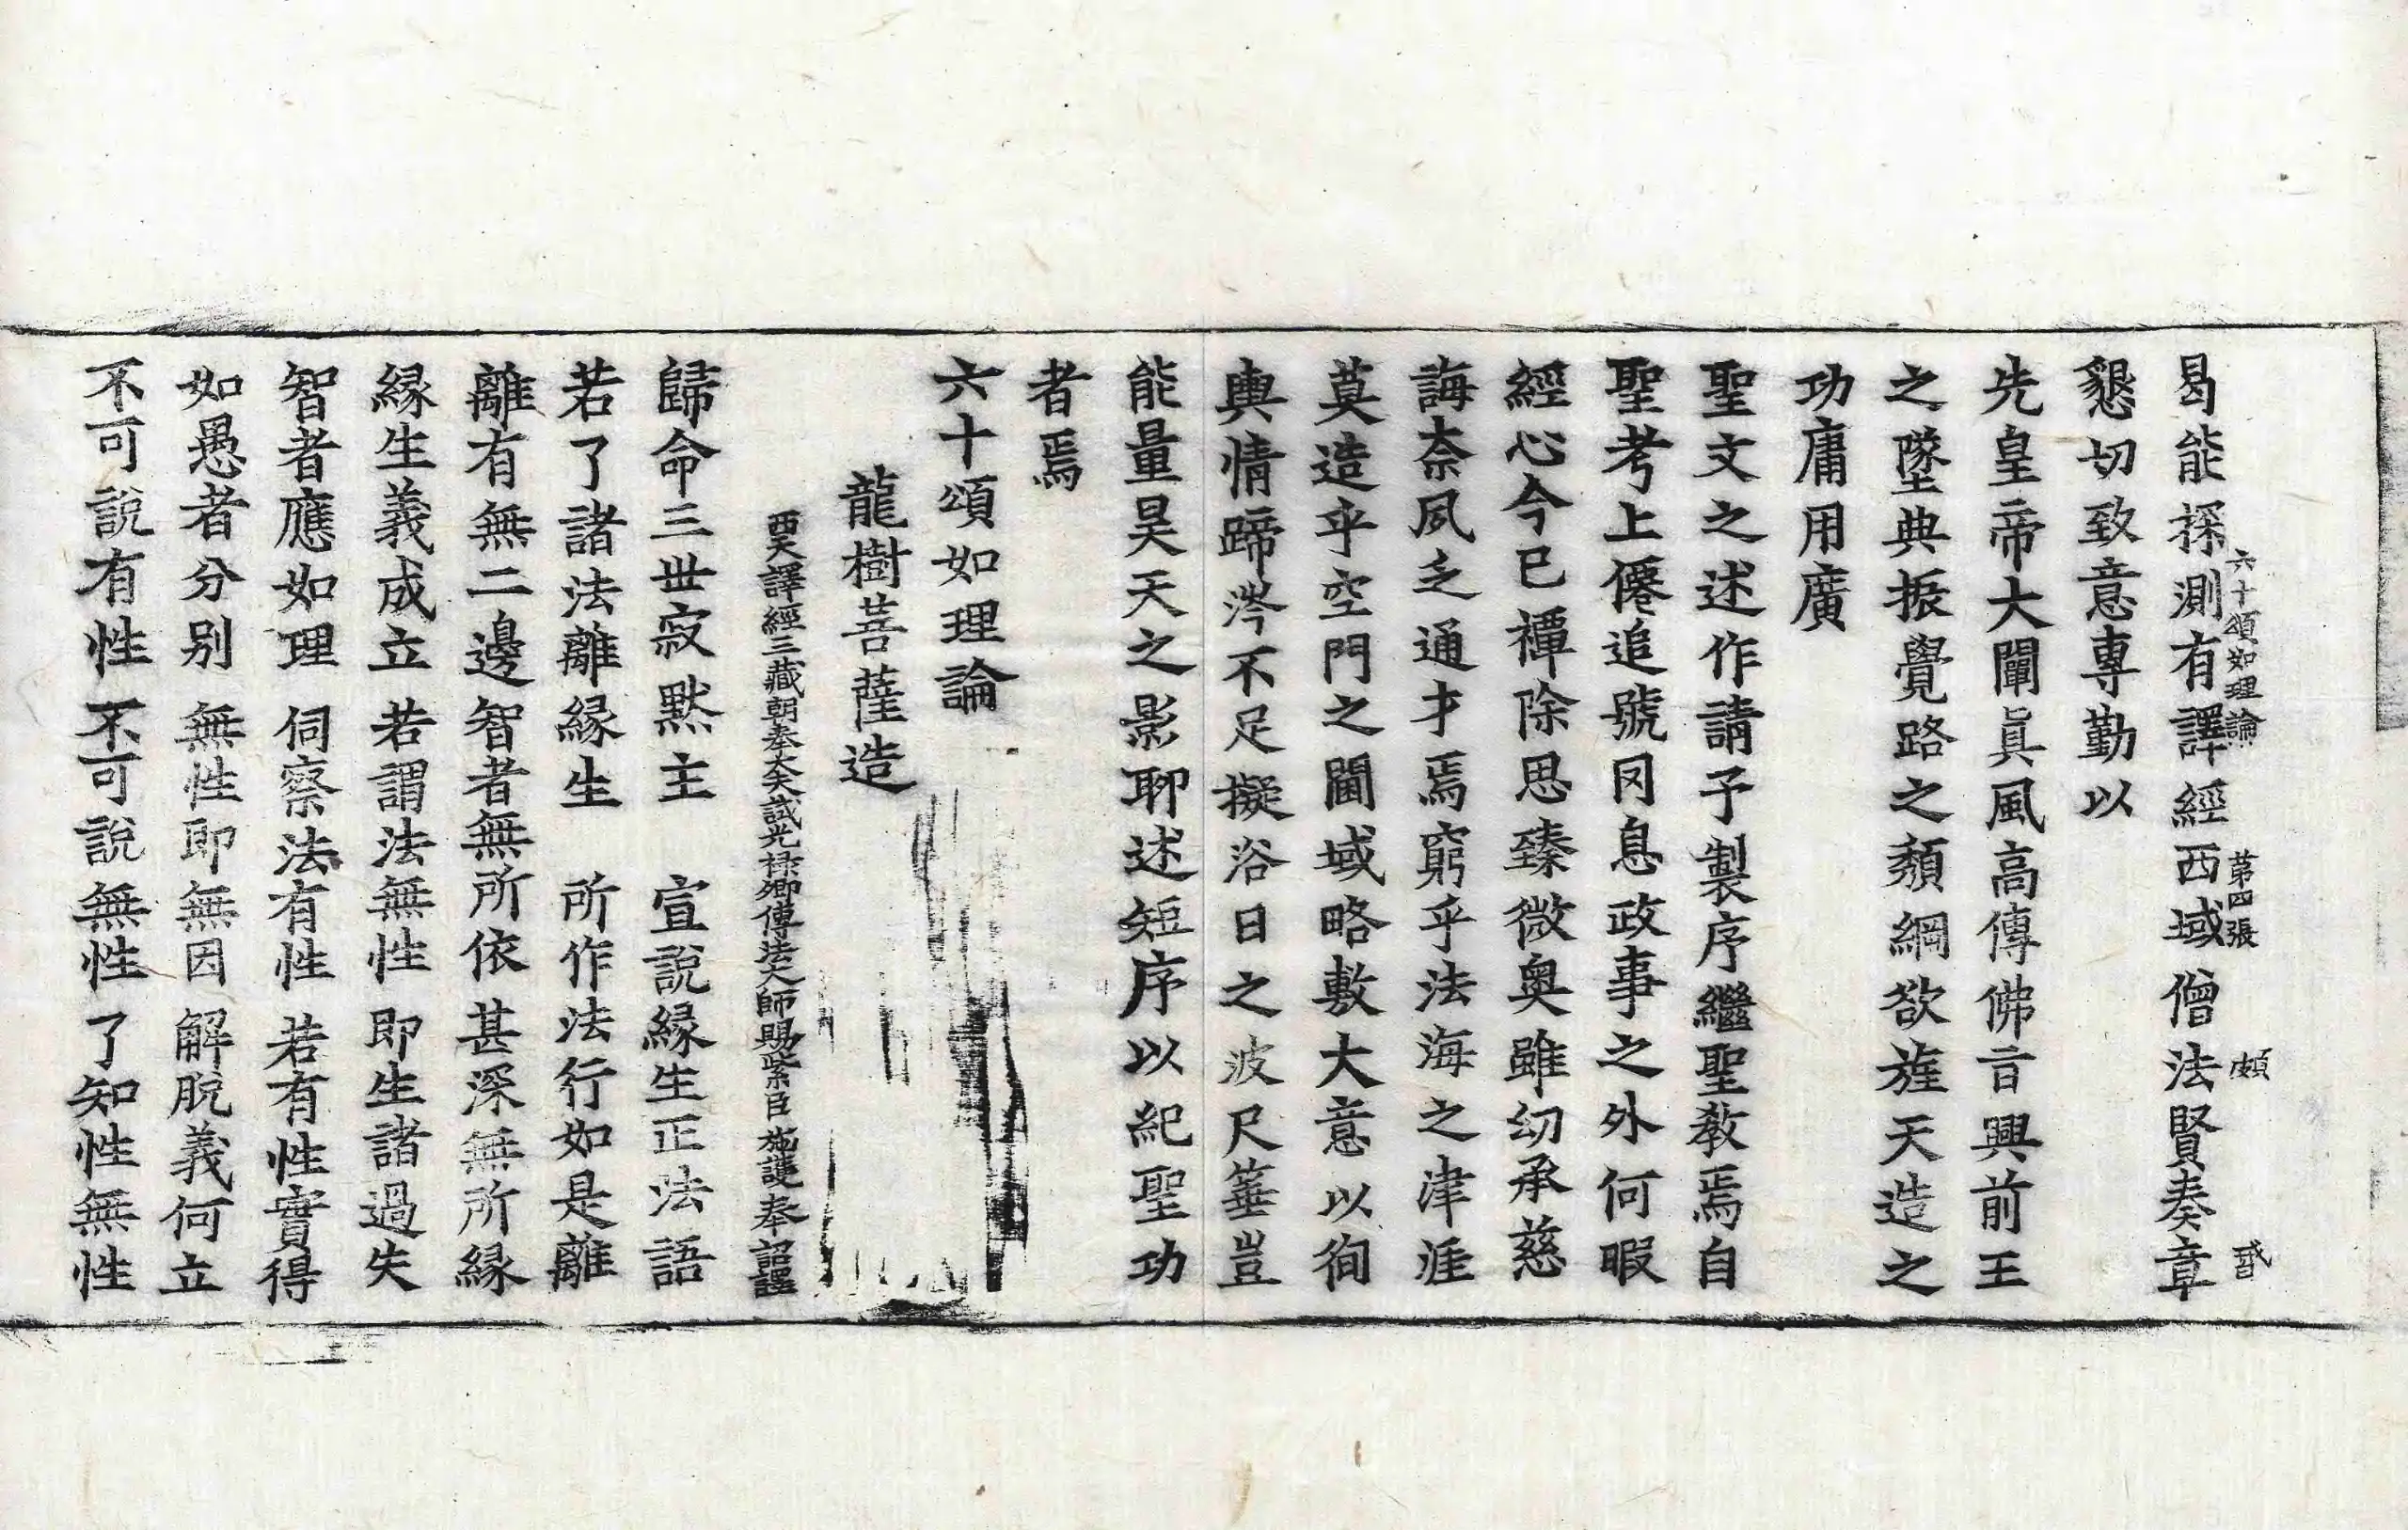 曷能探測有譯經西域僧法賢奏章
六十頌如理論 第四張 頗
懇切致意專勤以
先皇帝大闡眞風高傳佛旨興前王
之墜典振覺路之頽綱欲旌天造之
功庸用廣
聖文之述作請予製序繼聖教焉自
聖考上僊追號罔息政事之外何暇
經心今已禫除思臻微奧雖幼承慈
誨柰夙乏通才焉窮乎法海之津涯
莫造乎空門之閫域略敷大意以徇
輿情蹄涔不足擬浴日之波尺箠豈
能量昊天之影聊述短序以紀聖功
者焉
六十頌如理論
龍樹菩薩造
西天譯經三藏朝奉大夫試光祿卿傳法大師賜紫臣施護奉詔譯
歸命三世寂默主 宣說緣生正法語
若了諸法離緣生 所作法行如是離
離有無二邊智者無所依甚深無所緣
緣生義成立 若謂法無性 即生諸過失
智者應如理 伺察法有性 若有性實得
如愚者分别 無性即無因 解脫義何立
不可說有性 不可說無性 了知性無性